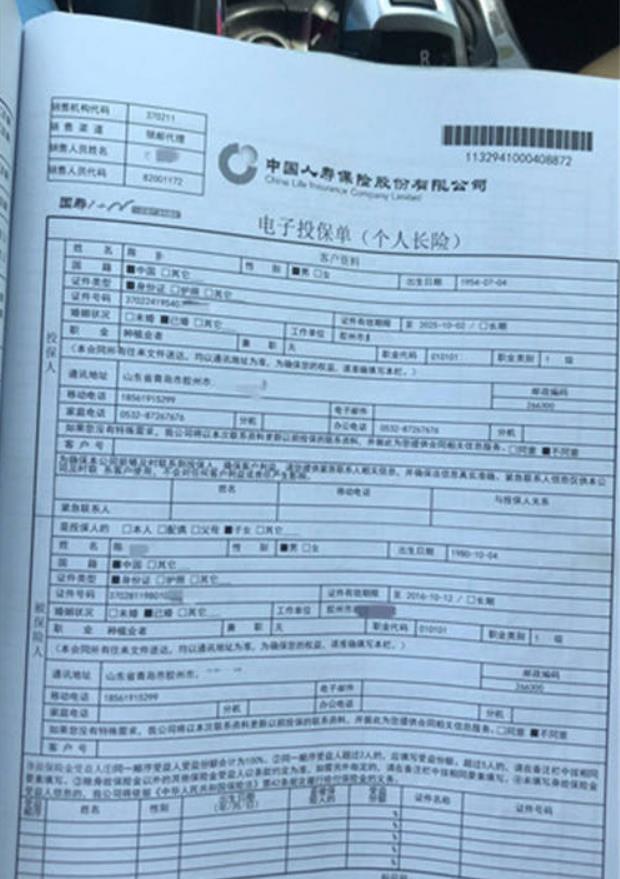 销售机构代码 370211
销售渠道 银邮代理
销售人员姓名
销售人员代码 82001172
1132941000408872
中国人寿保险股份有限公司
China Life Insurance Company Limited
国寿
电子投保单（个人长险）
客户资料
投保人
姓名 陈 性别 ■男 □女 出生日期 1954-07-04
国籍 ■中国 □其它
证件类型 ■身份证 □护照 □其它
证件号码 37022419540 证件有效期限 至 2025-10-02 / □长期
婚姻状况 □未婚 ■已婚 □其它 工作单位 胶州市
职业 种植业者 兼职 无 职业代码 010101 职业类别 1 级
（本合同所有往来文件送达，均以通讯地址为准，为确保您的权益，请准确填写本栏。）
通讯地址 山东省青岛市胶州市 邮政编码 266300
移动电话 18561915299 电子邮件
家庭电话 0532-87267676 分机 办公电话 0532-87267676 分机
如果您没有特殊需求，我公司将以本次联系资料更新以前投保的联系资料，并据此为您提供合同相关信息服务。□同意 ■不同意
客户号
为确保本公司能够及时联系到投保人，确保客户利益，请您提供紧急联系人相关信息，并确保该信息真实准确。紧急联系人信息仅供本公司及时联系客户使用，不会对任何客户利益或责任产生影响。
姓名 移动电话 与投保人关系
紧急联系人
被保险人
是投保人的 □本人 □配偶 □父母 ■子女 □其它
姓名 陈 性别 ■男 □女 出生日期 1980-10-04
国籍 ■中国 □其它
证件类型 ■身份证 □护照 □其它
证件号码 370281198010 证件有效期限 至 2016-10-12 / □长期
婚姻状况 □未婚 ■已婚 □其它 工作单位 胶州市
职业 种植业者 兼职 无 职业代码 010101 职业类别 1 级
（本合同所有往来文件送达，均以通讯地址为准，为确保您的权益，请准确填写本栏。）
通讯地址 山东省青岛市胶州市 邮政编码 266300
移动电话 18561915299 电子邮件
家庭电话 分机 办公电话 分机
如果您没有特殊需求，我公司将以本次联系资料更新以前投保的联系资料，并据此为您提供合同相关信息服务。□同意 ■不同意
客户号
身故保险金受益人①同一顺序受益人受益份额合计为100%。②同一顺序受益人超过2人的，应填写受益份额，超过5人的，请在备注栏中按相同
要素填写。③除身故保险金以外的其他保险金受益人以条款约定为准，如需另外指定的，请在备注栏中按相同要素填写。④未填写身故保险金
受益人信息的，我公司将依据《中华人民共和国保险法》第42条规定履行给付保险金的义务。
受益顺序 姓名 性别 出生日期（年/月/日） 是被保险人的 受益份额 证件名称 证件号码
%
%
%
%